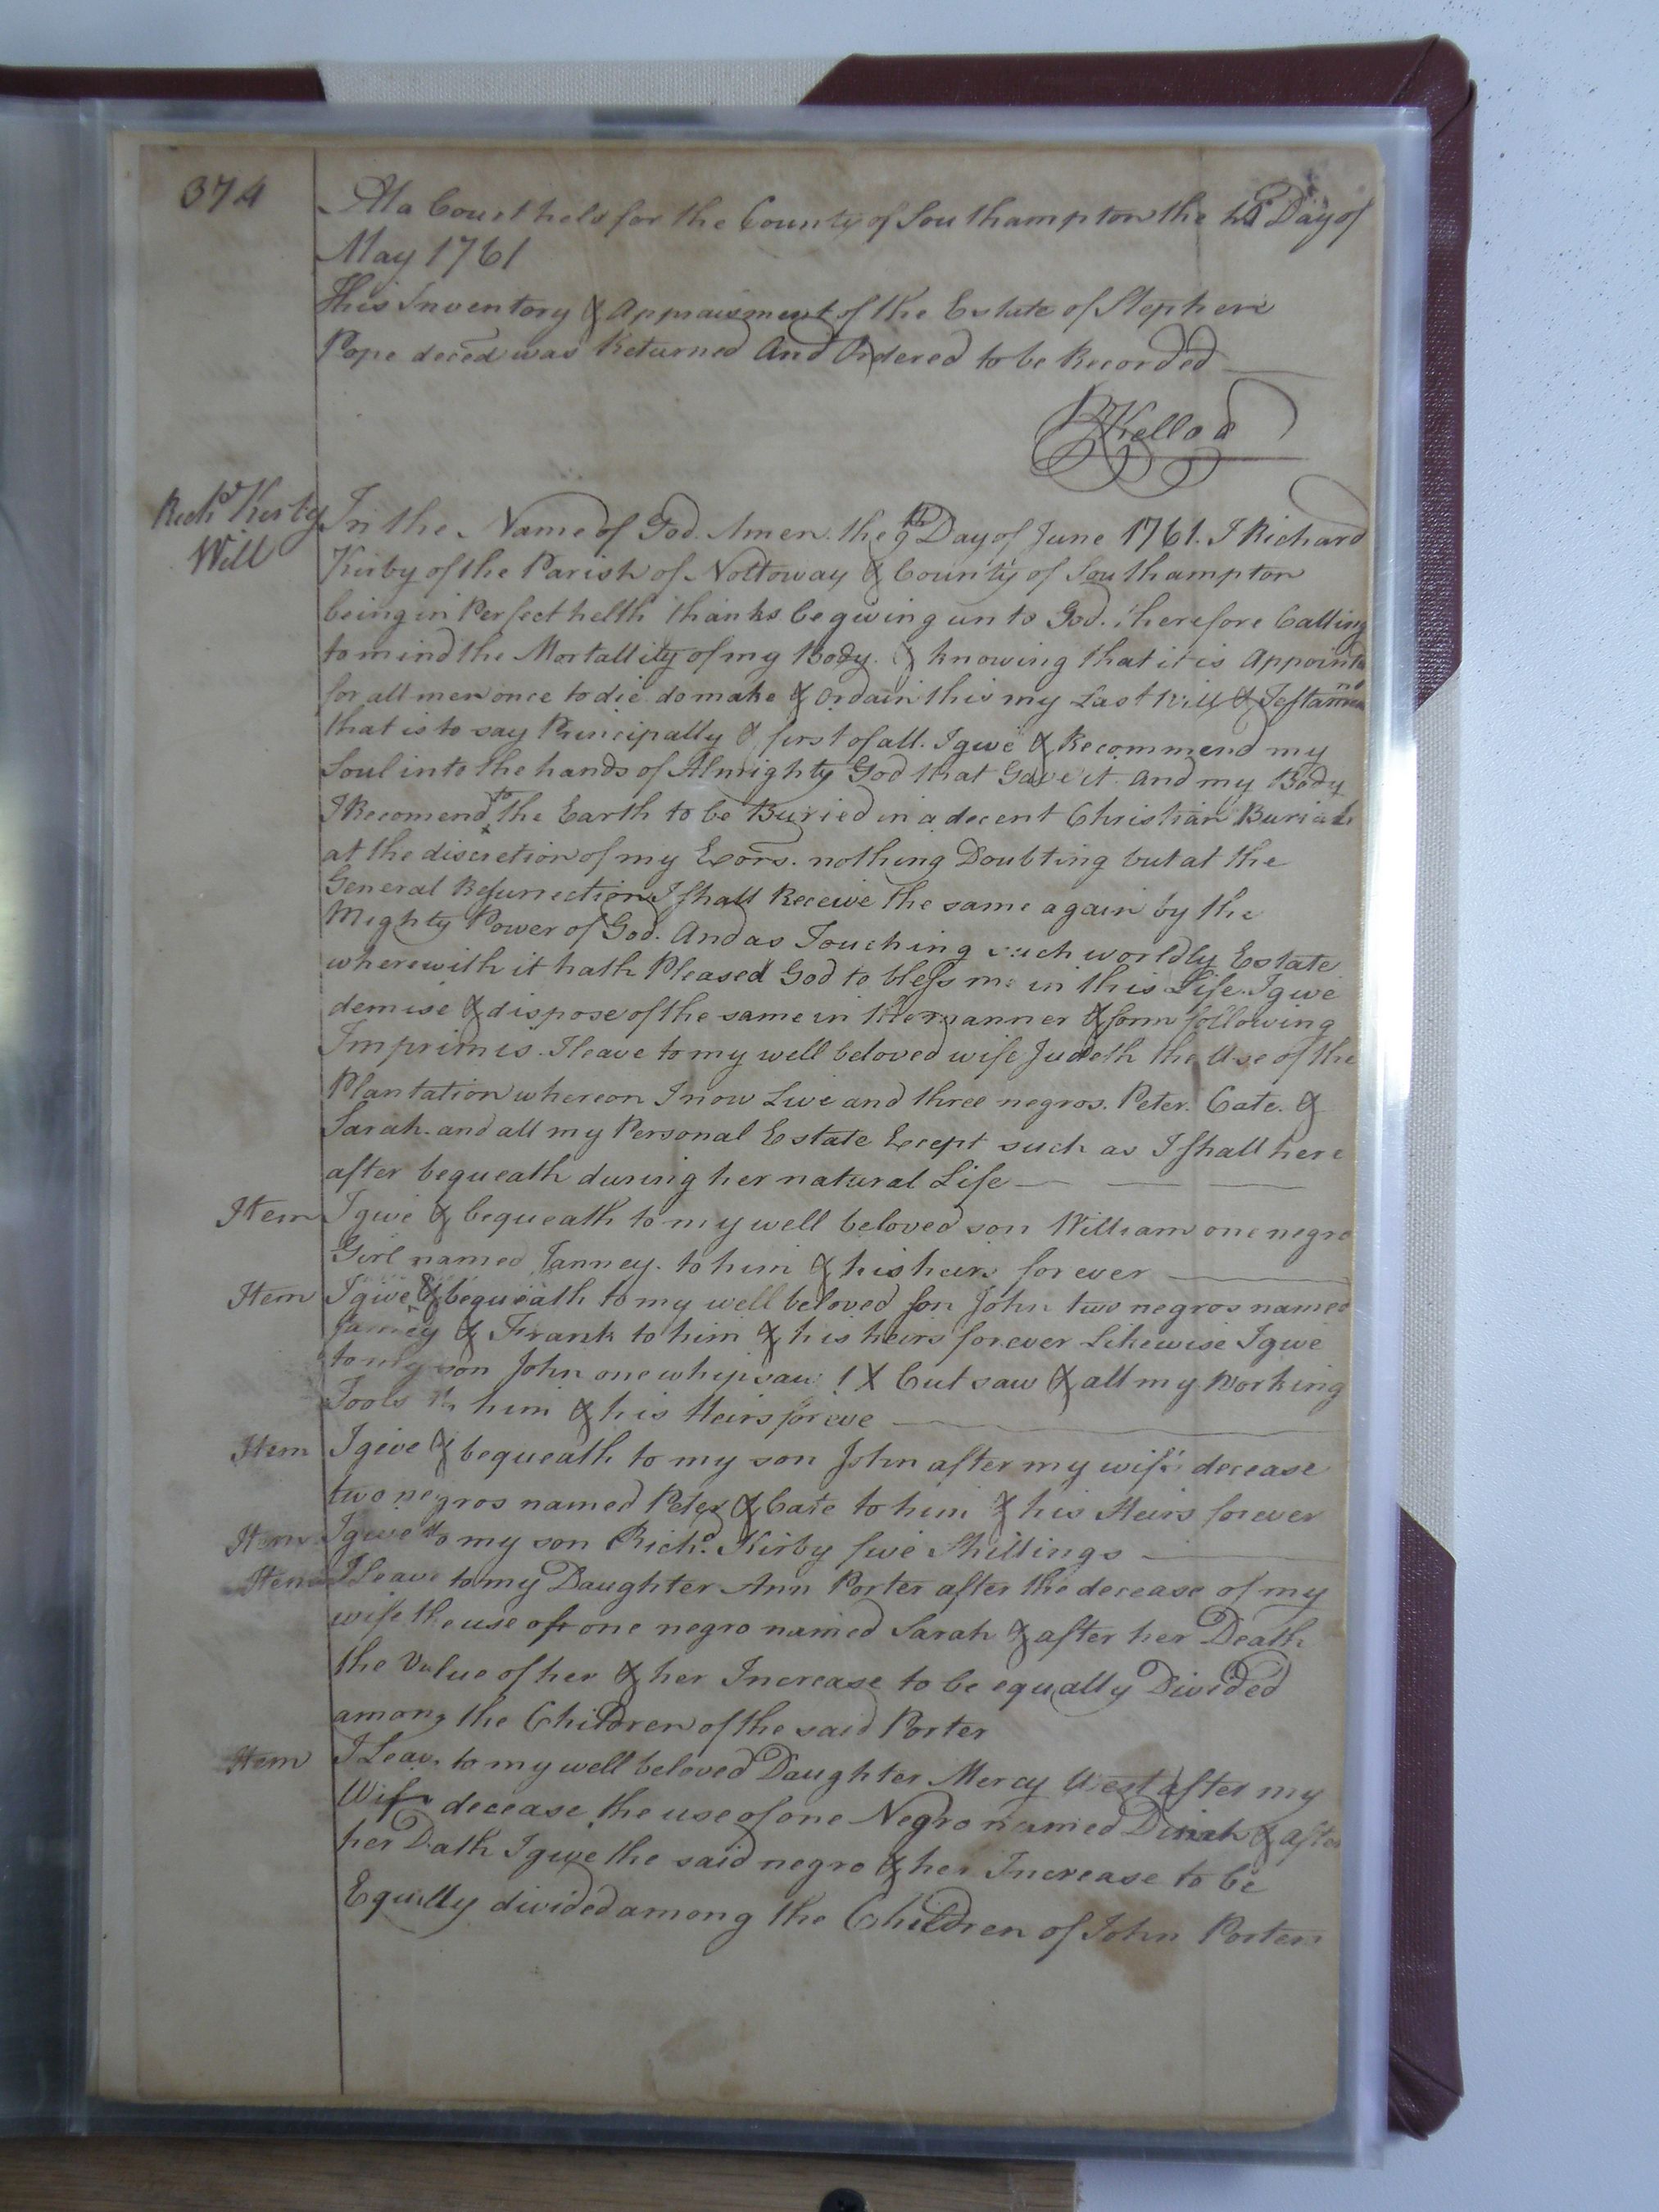 374
At a Court held for the County of Southampton the Day of
May 1761
This Inventory & Appraisment of the Estate of Stephen
Pope deced was Returned And Ordered to be Recorded
Richd Kirby
Will
In the Name of God. Amen. the 9th Day of June 1761. I Richard
Kirby of the Parish of Nottoway & County of Southampton
being in Perfect helth thanks be giving unto God. therefore Calling
to mind the Mortallity of my Body. & knowing that it is Appointed
for all men once to die do make & ordain this my Last Will & Testament
that is to say Principally & first of all. I give & Recommend my
Soul into the hands of Almighty God that Gave it. And my Body
I Recomend to the Earth to be Buried in a decent Christian Burial
at the discretion of my Exors. nothing Doubting but at the
General Resurrection I shall Receive the same again by the
Mighty Power of God. And as Touching such worldly Estate
wherewith it hath Pleased God to bless me in this Life. I give
demise & dispose of the same in the manner & form following
Imprimis. I leave to my well beloved wife Judeth the Use of the
Plantation whereon I now Live and three negros. Peter. Cate. &
Sarah. and all my Personal Estate Except such as I shall here
after bequeath during her natural Life
Item I give & bequeath to my well beloved son William one negro
Girl named Janney. to him & his heirs for ever
Item I give & bequeath to my well beloved son John two negros named
& Frank to him & his heirs forever Likewise I give
to my son John one whipsaw 1 X Cut saw & all my working
Tools to him & his Heirs foreve
Item I give & bequeath to my son John after my wife decease
two negros named Peter & Cate to him & his Heirs forever
Item I give to my son Richd. Kirby five Shillings
Item I Leave to my Daughter Ann Porter after the decease of my
wife the use of one negro named Sarah & after her Death
the Value of her & her Increase to be equally Divided
among the Children of the said Porter
Item I Leave to my well beloved Daughter Mercy West after my
Wife decease the use of one Negro named Dinah & after
her Death I give the said negro & her Increase to be
Equally divided among the Children of John Porter